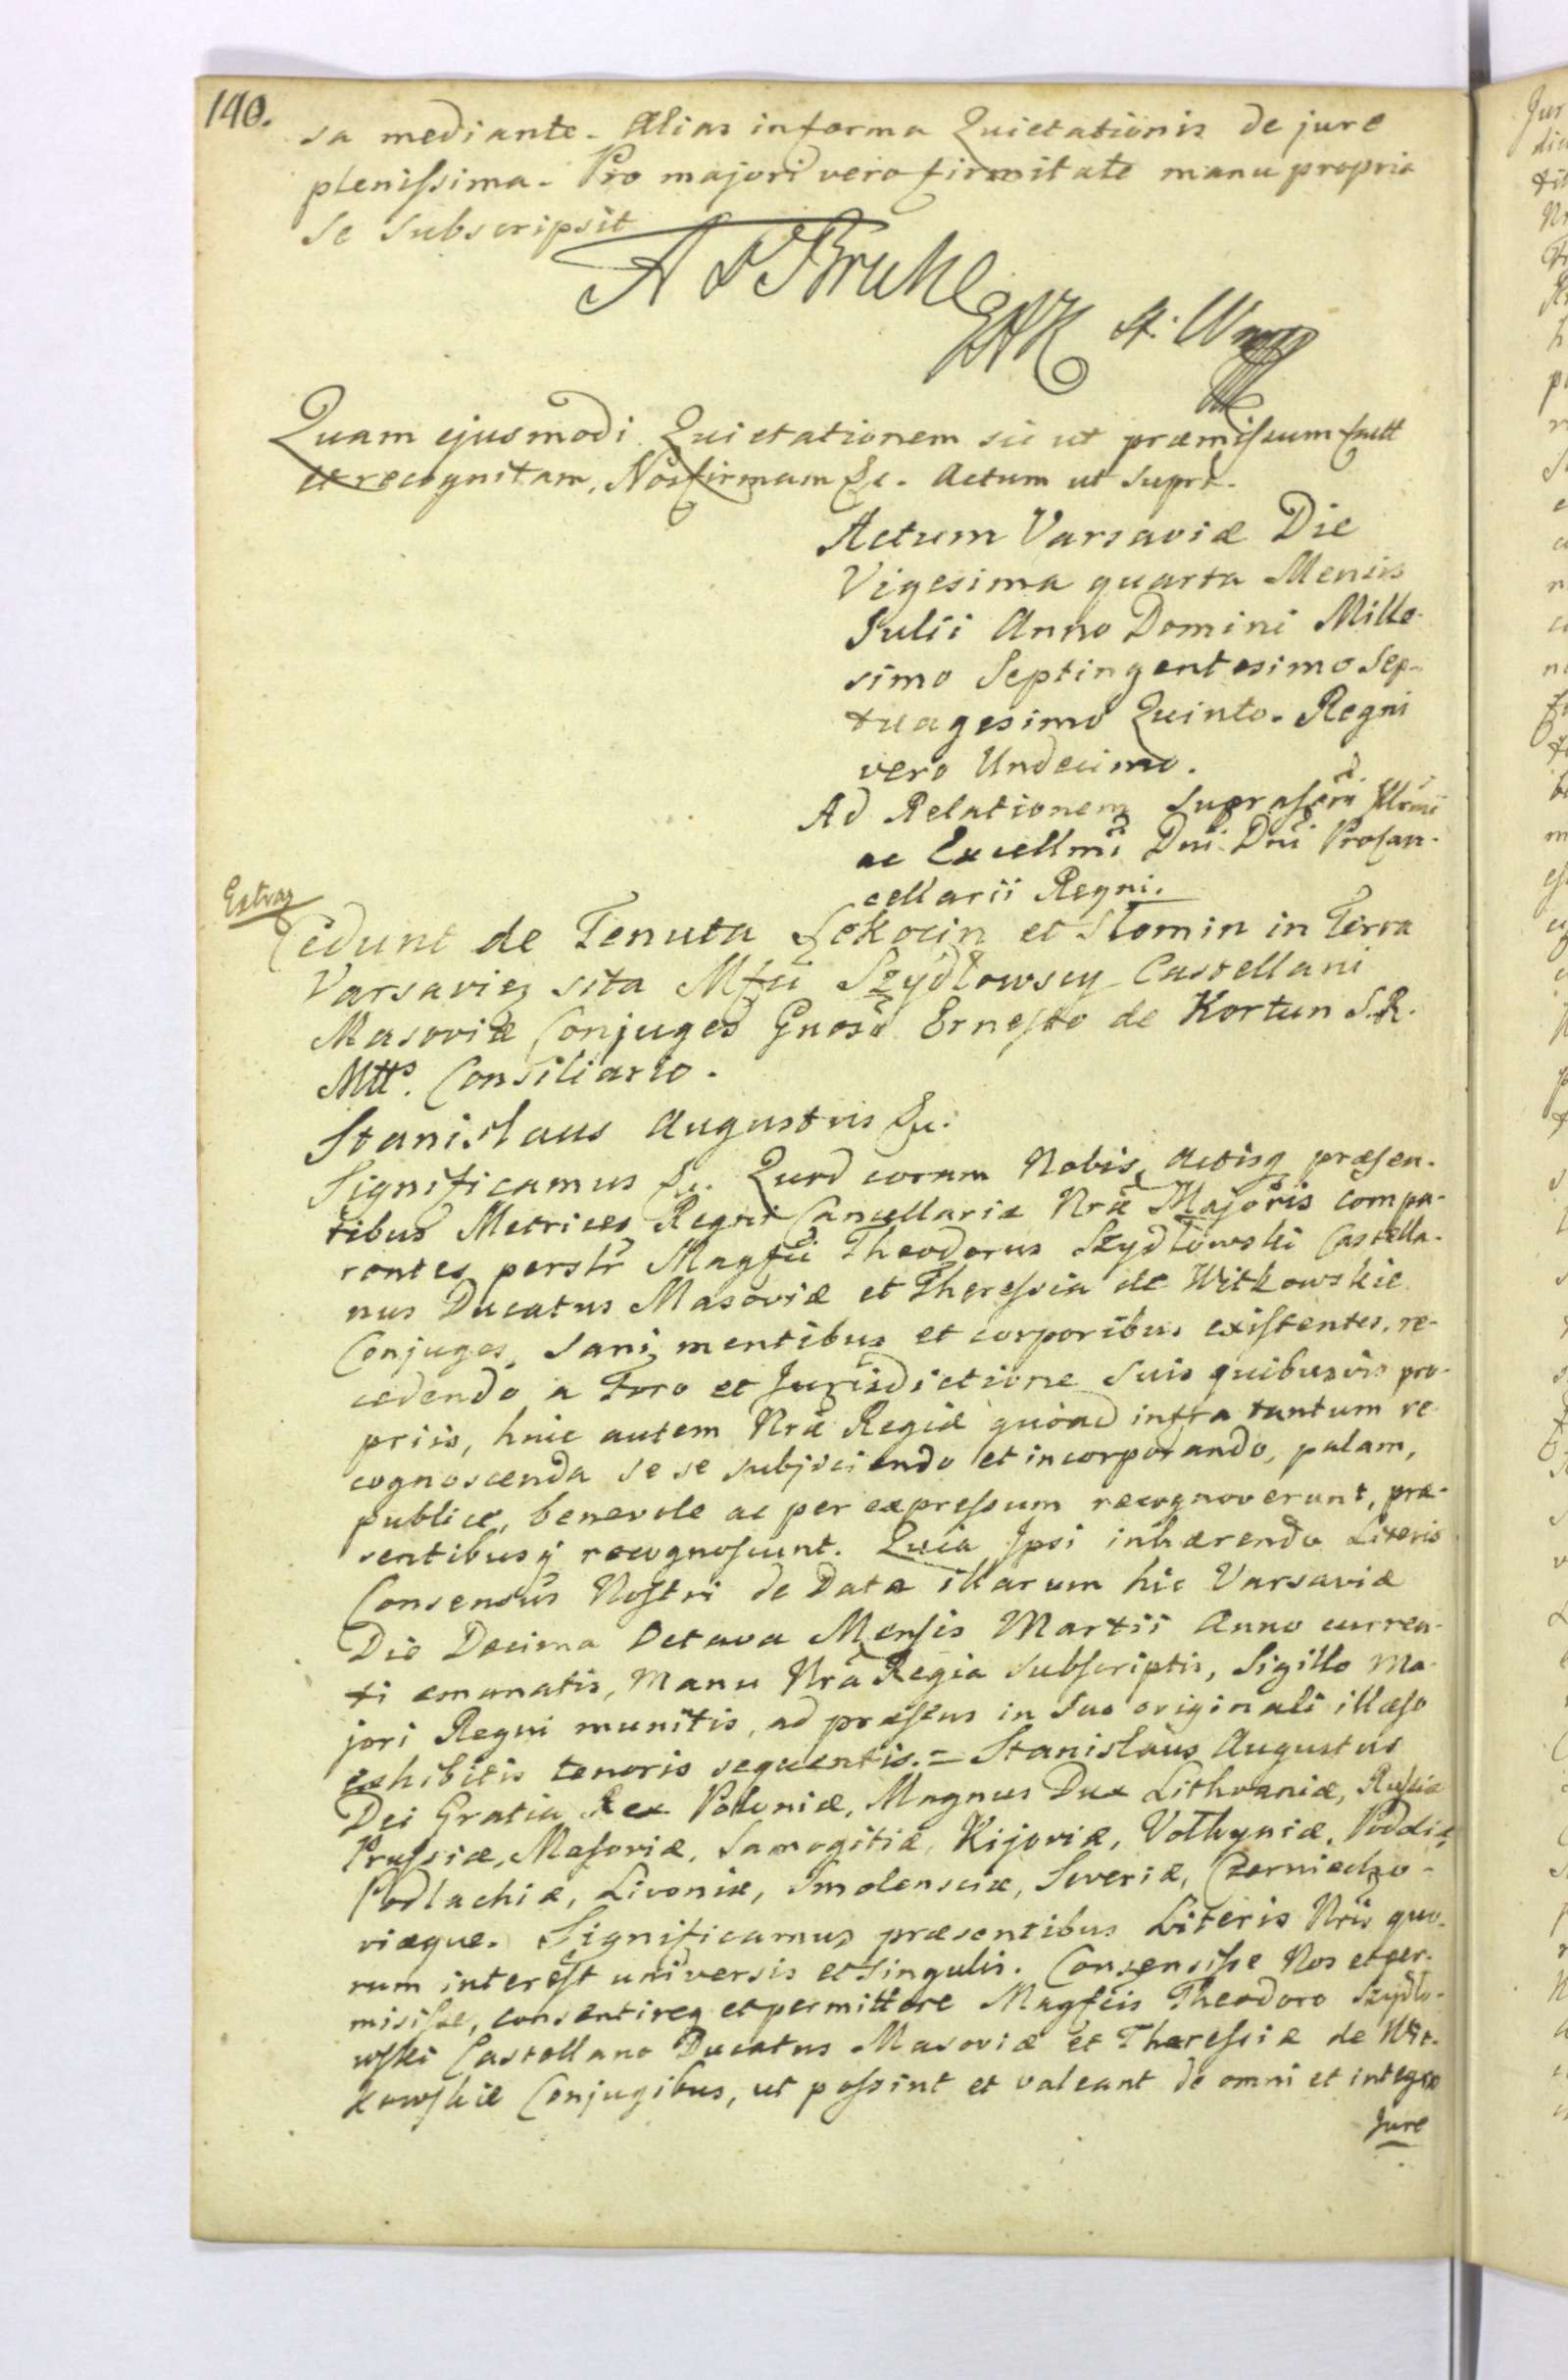 140.
sa mediante. Alias in forma Quietationis de jure
plenissima. Pro majori vero firmitate manu propria
se subscripsit
A Bruhl
Quam ejusmodi Quietationem sic ut præmissum
et recognitam, Nos firmam &c. Actum ut supra.
Actum Varsaviæ Die
Vigesima quarta Mensis
Julii Anno Domini Mille-
simo Septingentesimo Sep-
tuagesimo Quinto. Regni
vero Undecimo.
Ad Relationem suprascri Illrmi
ac Excellmi Dni Dni Procan-
cellarii Regni.
Extrax
Cedunt de Tenuta Łekocin et Słomin in Terra
Varsavien sita Mfci Szydłowscy Castellani
Masoviæ Conjuges Gnoso Ernesto de Kortum S.R.
Mtts. Consiliario.
Stanislaus Augustus &c.
Significamus &c. Quod coram Nobis, Actisq præsen-
tibus Metrices Regni Cancellariæ Nræ Majoris compa-
rentes persŕ Magfci Theodorus Szydłowski Castella-
nus Ducatus Masoviæ et Theressia de Witkowskie
Conjuges, sani mentibus et corporibus existentes, re-
cedendo a Foro et Jurisdictione suis quibusvis pro-
priis, huic autem Nræ Regiæ quoad infra tantum re-
cognoscenda sese subjiciendo et incorporando, palam,
publice, benevole ac per expressum recognoverunt, præ-
sentibusq recognoscunt. Quia Ipsi inhærendo Literis
Consensûs Nostri de Data illarum hic Varsaviæ
Die Decima Octava Mensis Martii Anno curren-
ti emanatis, Manu Nra Regia subscriptis, Sigillo Ma-
jori Regni munitis, ad præsens in suo originali illæso
exhibitis tenoris sequentis. = Stanislaus Augustus
Dei Gratia Rex Poloniæ, Magnus Dux Lithvaniæ, Russiæ
Prussiæ, Masoviæ, Samogitiæ, Kijoviæ, Volhyniæ, Podoliæ,
Podlachiæ, Livoniæ, Smolensciæ, Severiæ, Czerniecho-
viæque. Significamus præsentibus Literis Nris quo-
rum interest universis et singulis. Consensisse Nos et per-
misisse, consentireq et permittere Magfcis Theodoro Szydło-
wski Castellano Ducatus Masoviæ et Theressiæ de Wit-
kowskie Conjugibus, ut possint et valeant de omni et integro
Jure